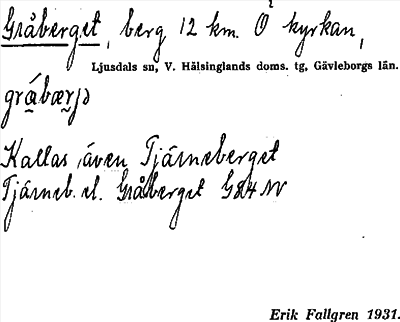 Gråberget, berg 12 km. Ö kyrkan,
Ljusdals sn, V. Hälsinglands doms. tg, Gävleborgs län.
Kallas även Tjärneberget
Tjärneb. el. Gråberget GS4 NV
Erik Fallgren 1931.